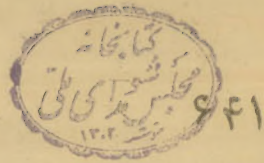 کتابخانه
مجلس شورای ملی
۱۳۰۲
۶۴۱